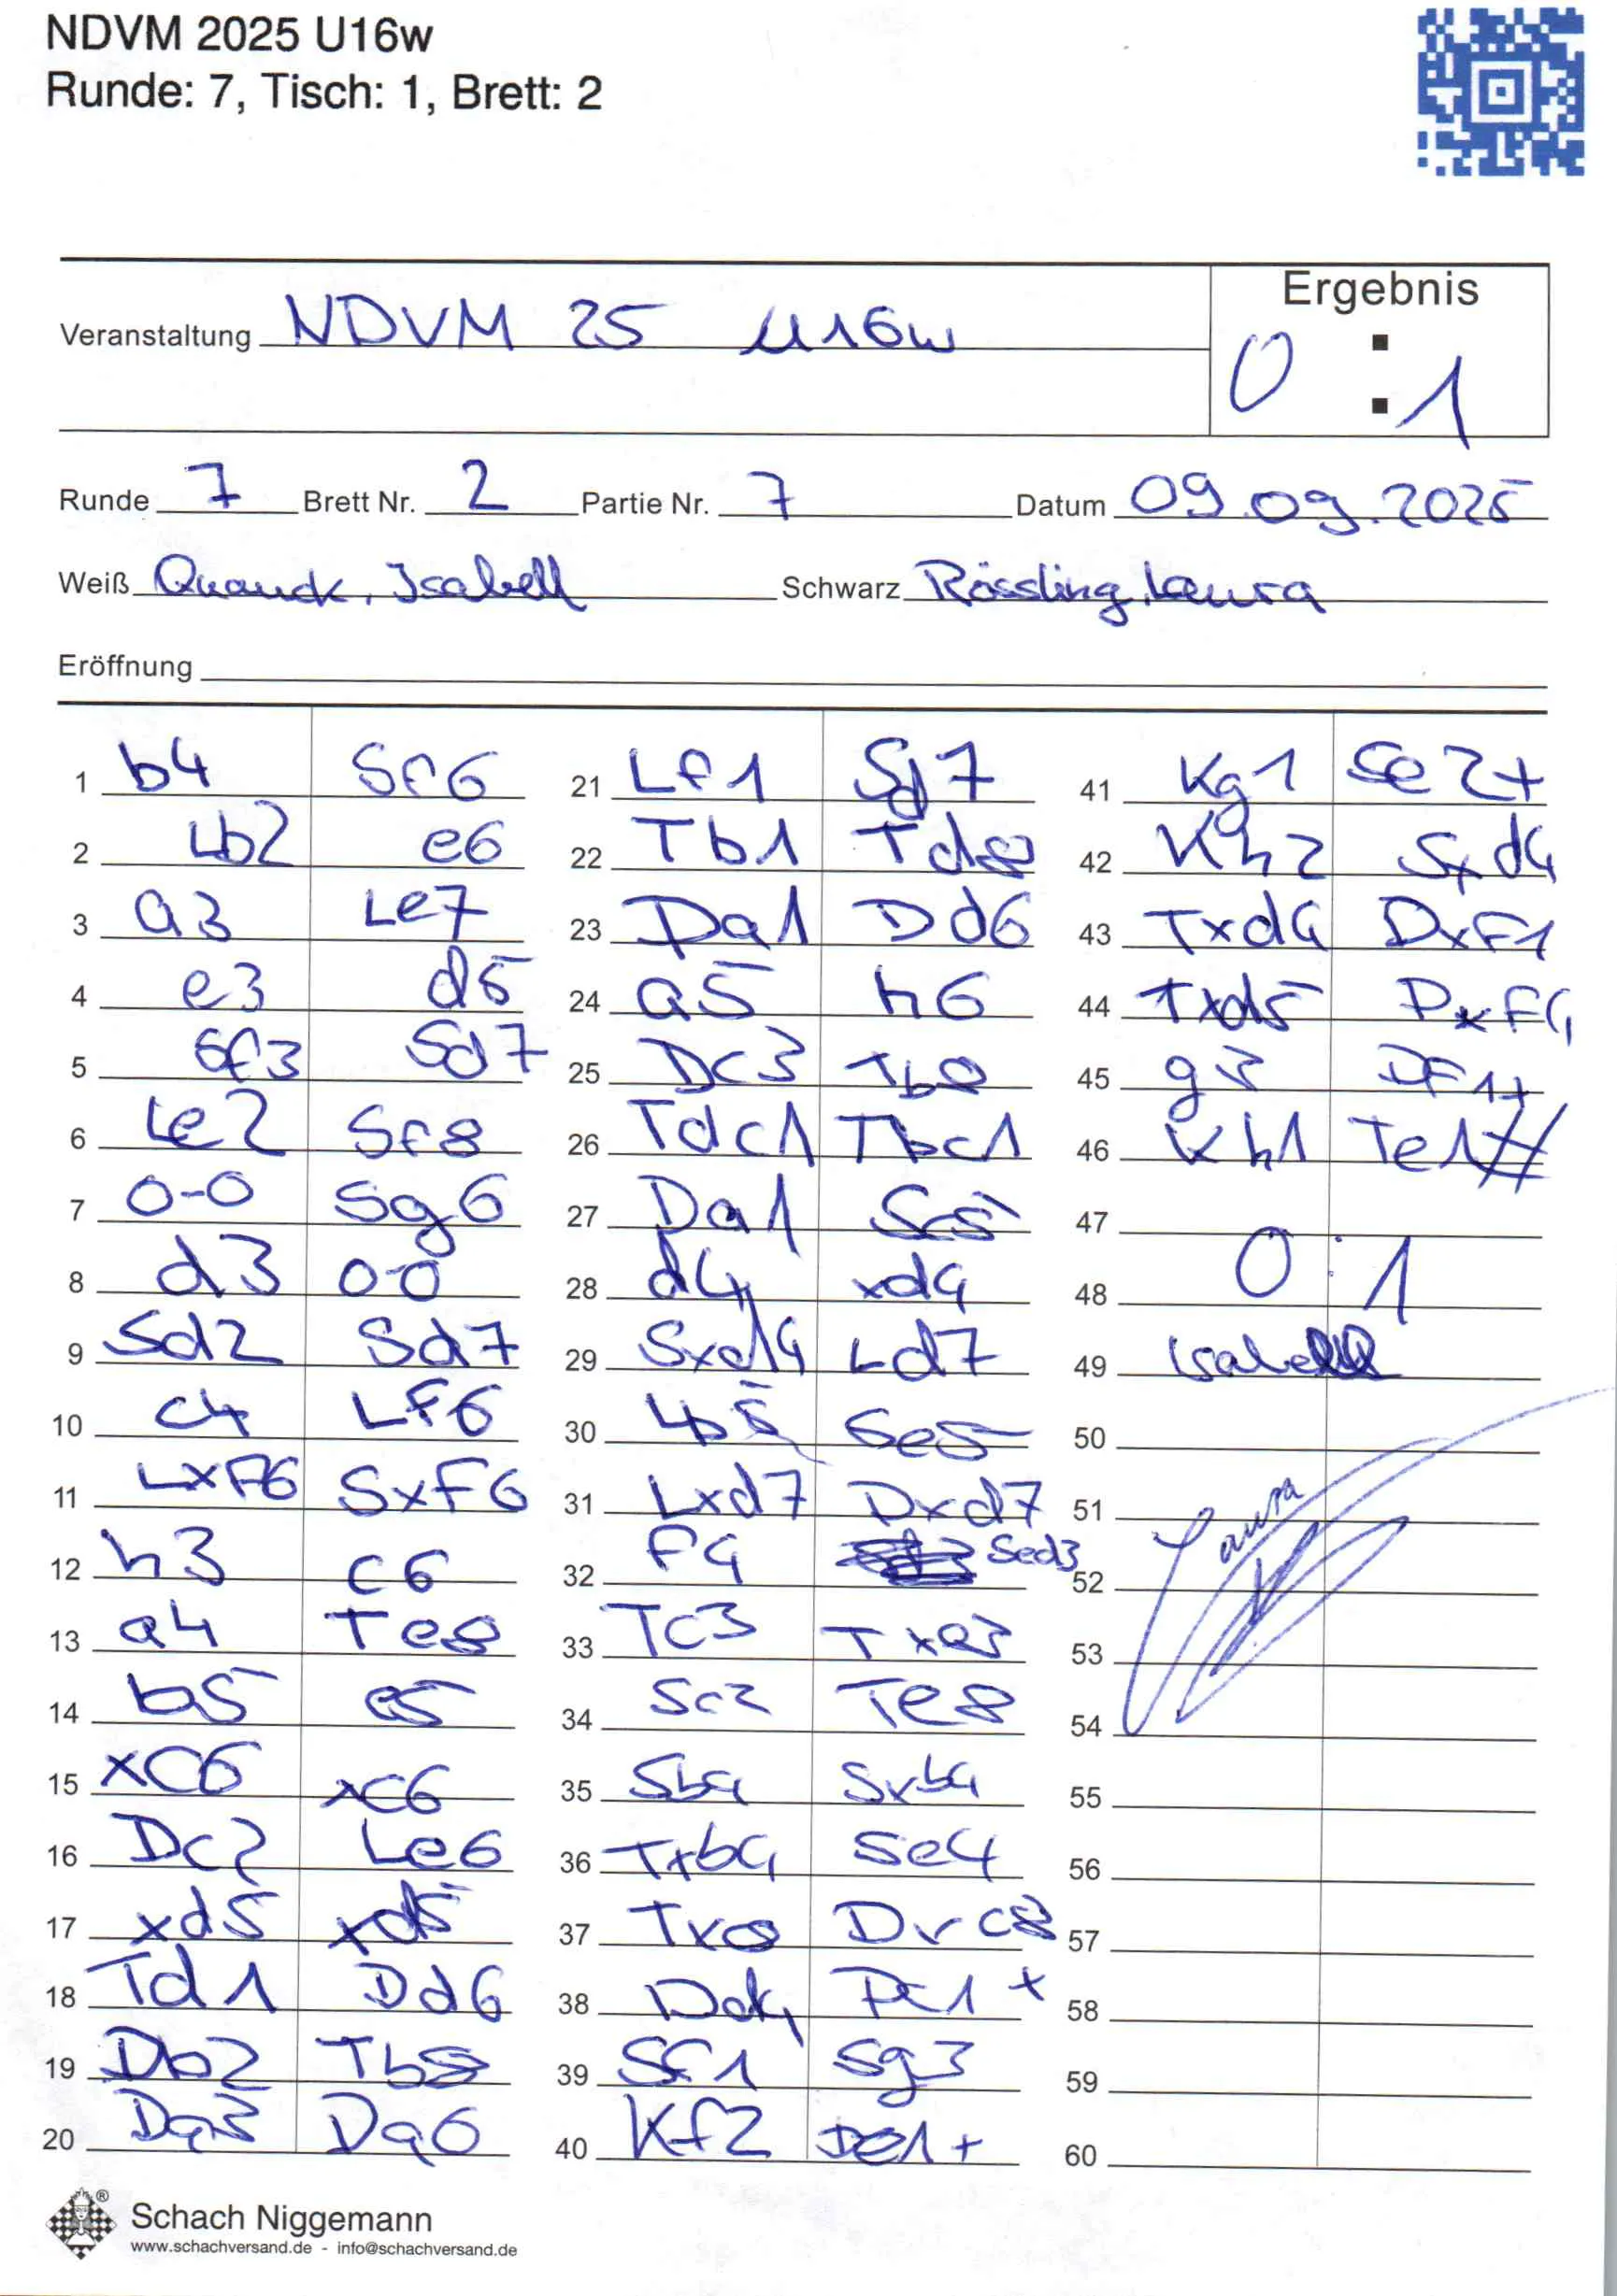 NDVM 2025 U16w
Runde: 7, Tisch: 1, Brett: 2
Ergebnis
Veranstaltung NDVM 25 U16w
0 : 1
Runde 7 Brett Nr. 2 Partie Nr. 7 Datum 09.09.2025
Weiß Quanck, Isabell Schwarz Rössling, Laura
Eröffnung
1 b4 Sf6
2 Lb2 e6
3 a3 Le7
4 e3 d5
5 Sf3 Sd7
6 Le2 Sf8
7 0-0 Sg6
8 d3 0-0
9 Sd2 Sd7
10 c4 Lf6
11 Lxf6 Sxf6
12 h3 c6
13 a4 Te8
14 b5 e5
15 xc6 xc6
16 Dc2 Le6
17 xd5 xd5
18 Td1 Dd6
19 Db2 Tb8
20 Da3 Da6
21 Lf1 Sd7
22 Tb1 Td8
23 Da1 Dd6
24 a5 h6
25 Dc3 Tb8
26 Tdc1 Tbc1
27 Da1 Sc5
28 d4 xd4
29 Sxd4 Ld7
30 Lb5 Se5
31 Lxd7 Dxd7
32 f4 Sed3
33 Tc3 Txe3
34 Sc2 Te8
35 Sb4 Sxb4
36 Txb4 Se4
37 Txc8 Dxc8
38 Dd4 Dc1+
39 Sf1 Sg3
40 Kf2 De1+
41 Kg1 Se2+
42 Kh2 Sxd4
43 Txd4 Dxf1
44 Txd5 Dxf4
45 g3 Df1+
46 Kh1 Te1#
47
48 0 : 1
49 Isabell
50
51 Laura
52
53
54
55
56
57
58
59
60
Schach Niggemann
www.schachversand.de - info@schachversand.de